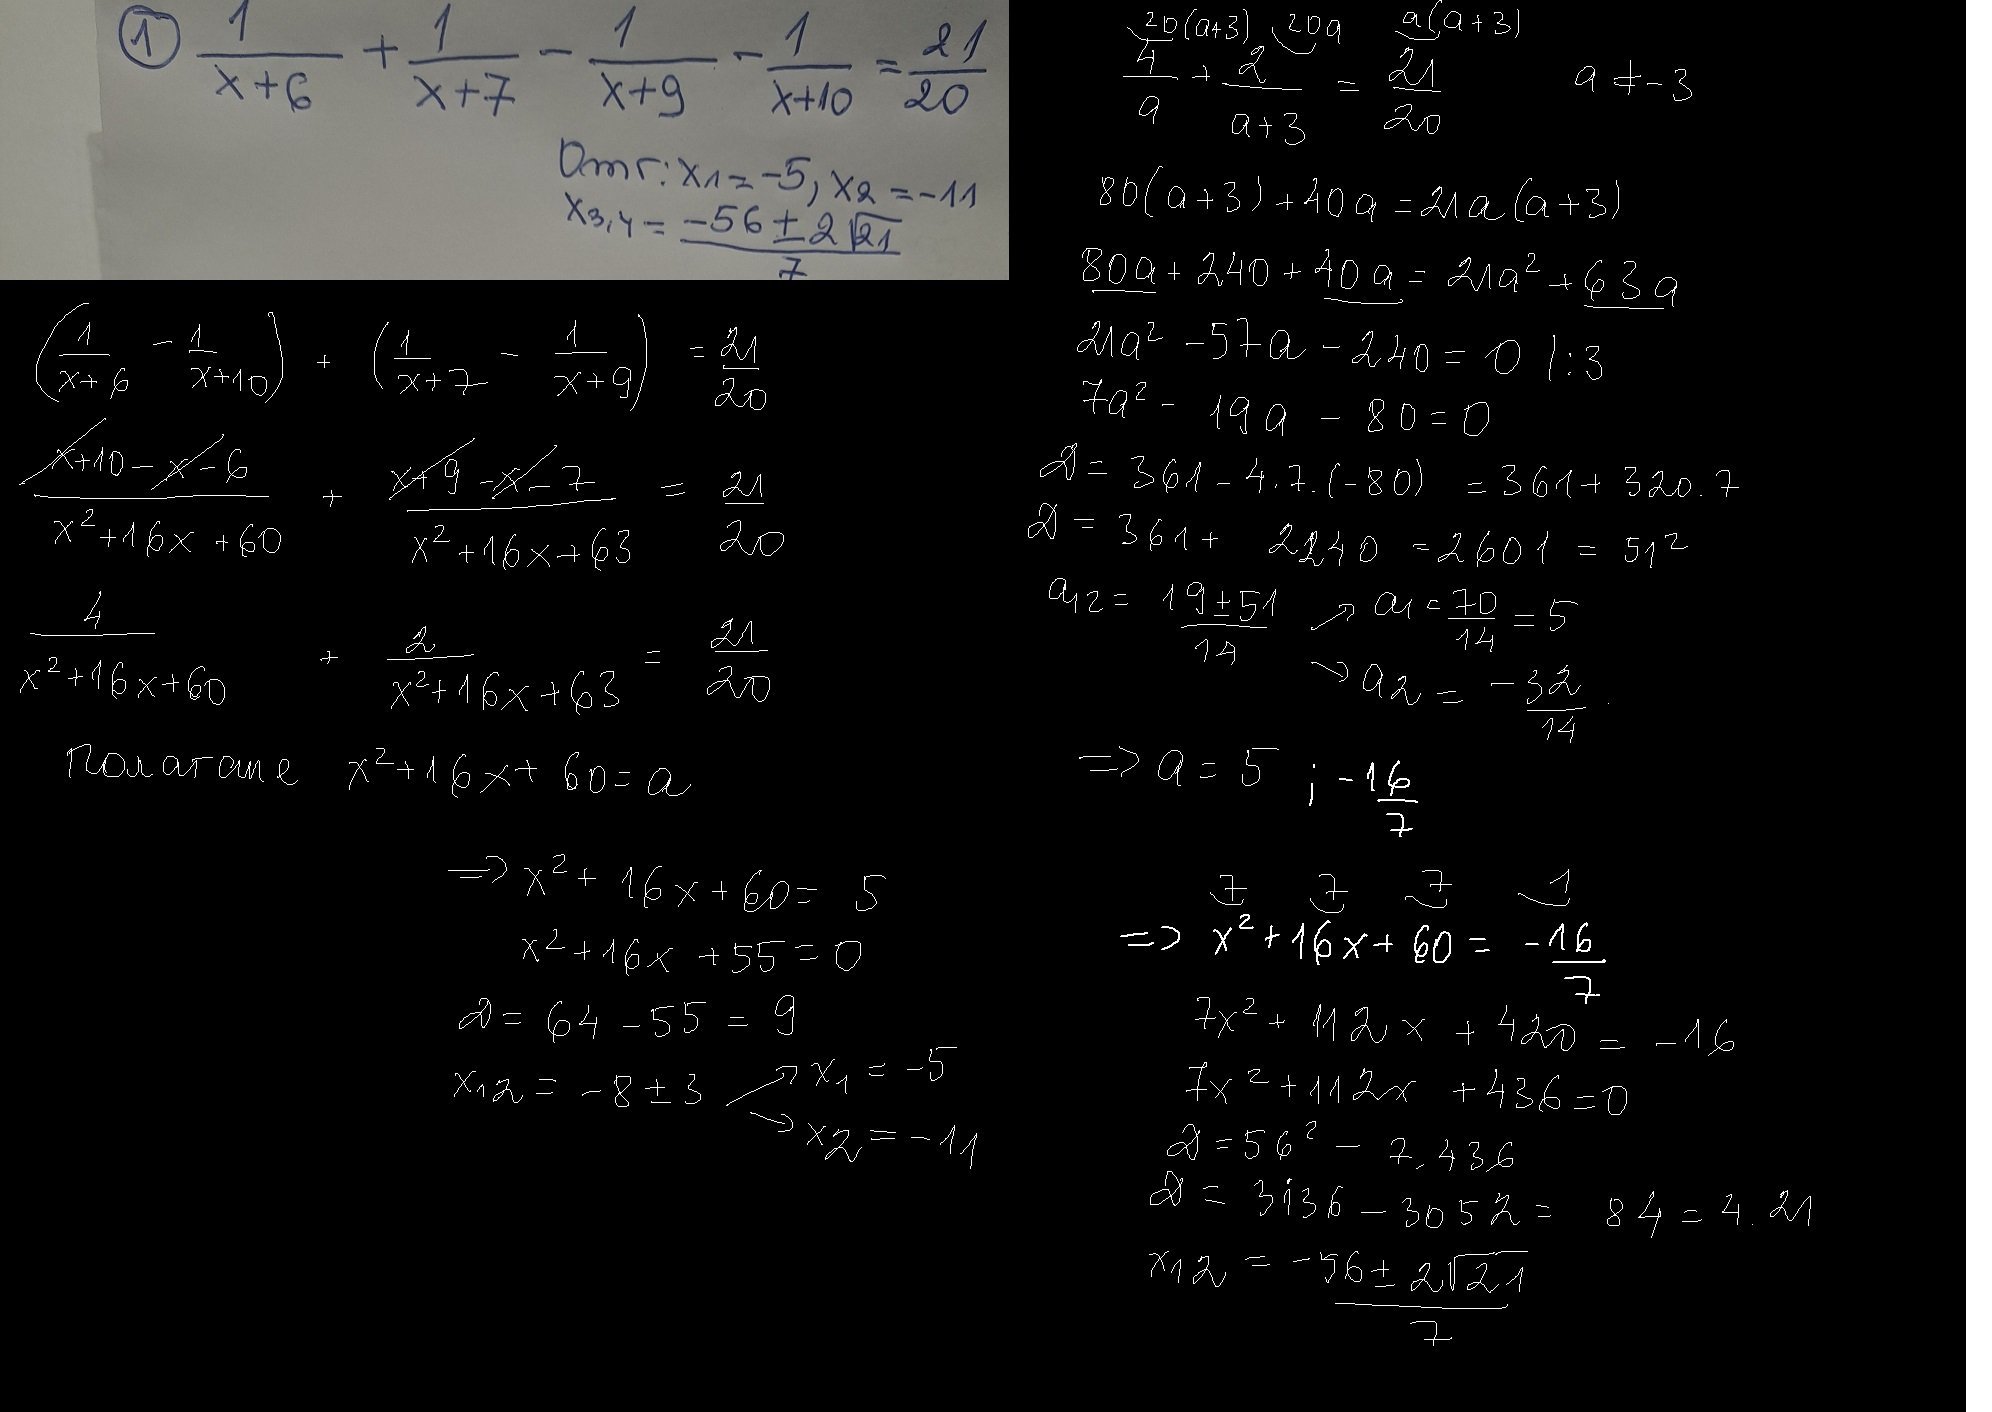 ① 1/(x+6) + 1/(x+7) - 1/(x+9) - 1/(x+10) = 21/20
Отг: x1 = -5, x2 = -11
x3,4 = (-56 ± 2√21)/7
(1/(x+6) - 1/(x+10)) + (1/(x+7) - 1/(x+9)) = 21/20
(x+10-x-6)/(x²+16x+60) + (x+9-x-7)/(x²+16x+63) = 21/20
4/(x²+16x+60) + 2/(x²+16x+63) = 21/20
Полагаме x²+16x+60 = a
=> x²+16x+60 = 5
x²+16x+55 = 0
D = 64 - 55 = 9
x12 = -8 ± 3 → x1 = -5
→ x2 = -11
20(a+3) 20a a(a+3)
4/a + 2/(a+3) = 21/20 a ≠ -3
80(a+3) + 40a = 21a(a+3)
80a + 240 + 40a = 21a² + 63a
21a² - 57a - 240 = 0 /:3
7a² - 19a - 80 = 0
D = 361 - 4.7.(-80) = 361 + 320.7
D = 361 + 2240 = 2601 = 51²
a12 = (19±51)/14 → a1 = 70/14 = 5
→ a2 = -32/14
=> a = 5 ; -16/7
7 7 7 1
=> x²+16x+60 = -16/7
7x² + 112x + 420 = -16
7x² + 112x + 436 = 0
D = 56² - 7.436
D = 3136 - 3052 = 84 = 4.21
x12 = (-56 ± 2√21)/7